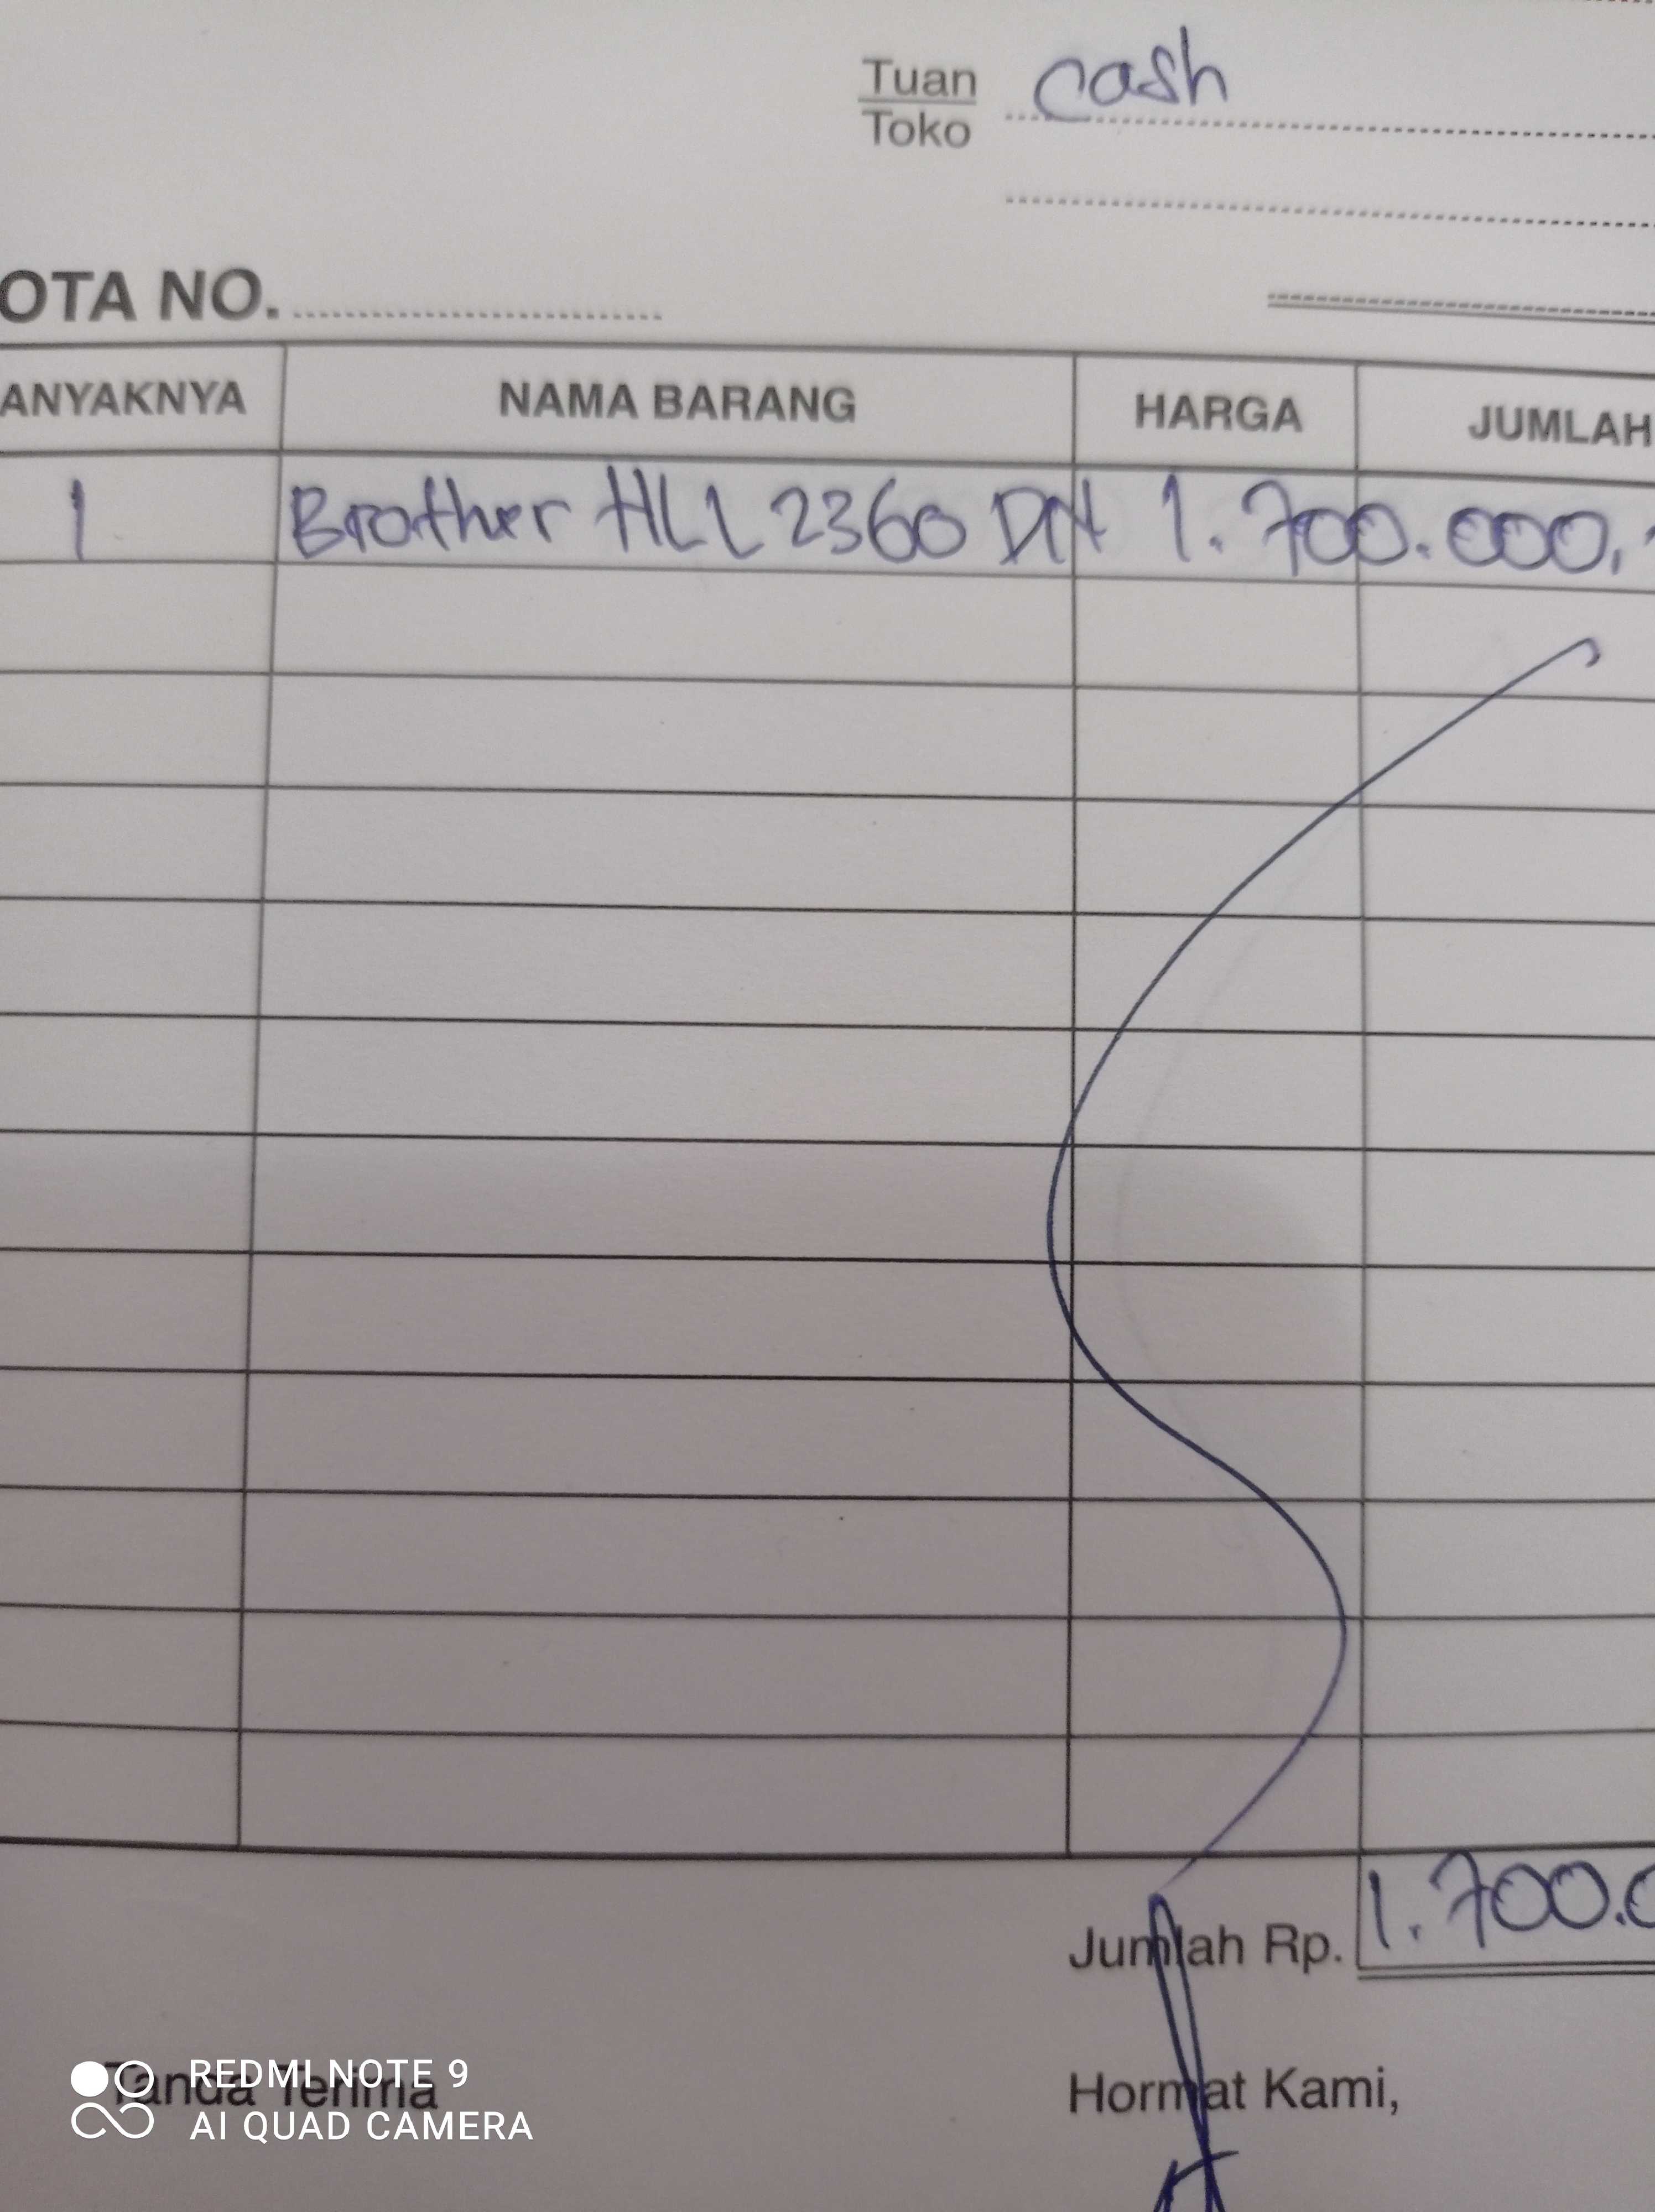 Tuan cash
Toko
OTA NO.
ANYAKNYA NAMA BARANG HARGA JUMLAH
1 Brother HLL 2360 DN 1.700.000,-
Jumlah Rp. 1.700.0
Tanda Terima Hormat Kami,
REDMI NOTE 9
AI QUAD CAMERA